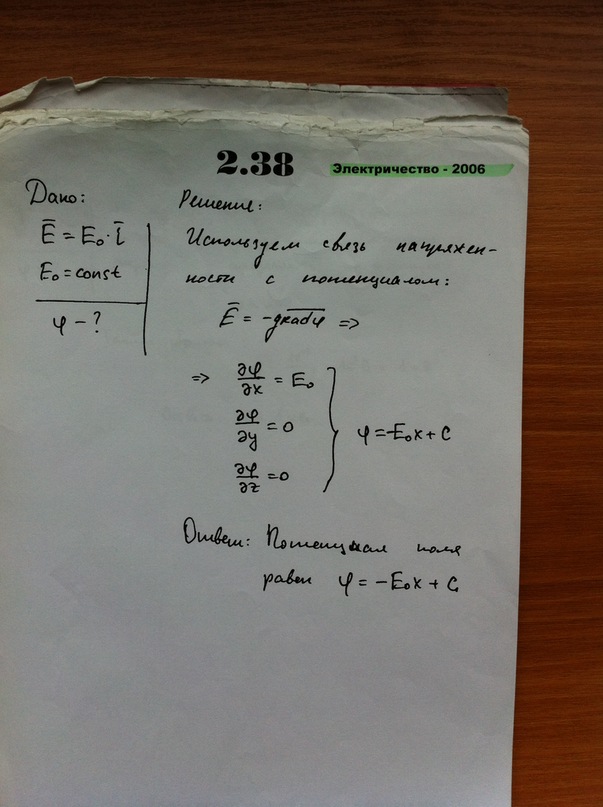 2.38
Электричество - 2006
Дано:
Ē = E₀ · ī
E₀ = const
φ - ?
Решение:
Используем связь напряжен-
ности с потенциалом:
Ē = -gradφ =>
=> ∂φ/∂x = E₀
∂φ/∂y = 0
∂φ/∂z = 0
φ = -E₀x + C
Ответ: Потенциал поля
равен φ = -E₀x + C